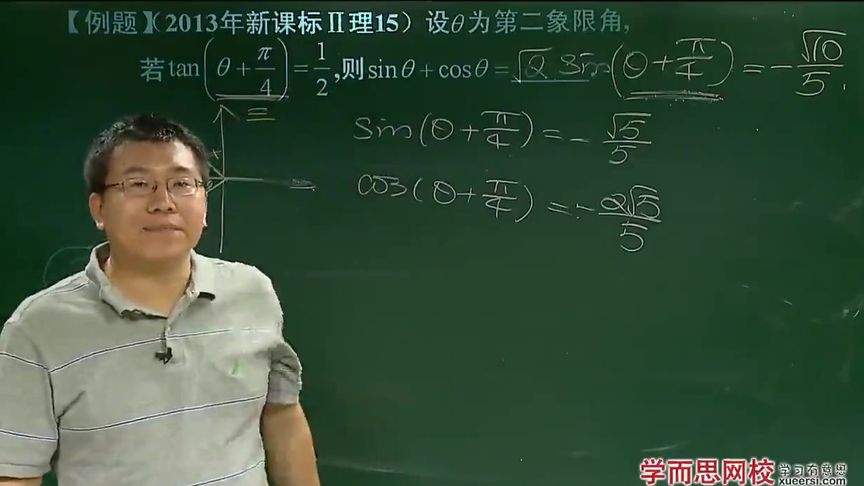 【例题】(2013年新课标Ⅱ理15) 设θ为第二象限角,
若tan(θ+π/4)=1/2,则sinθ+cosθ=√2 sin(θ+π/4)=-√10/5.
三
sin(θ+π/4)=-√5/5
cos(θ+π/4)=-2√5/5
学而思网校 学习有意思
xueersi.com